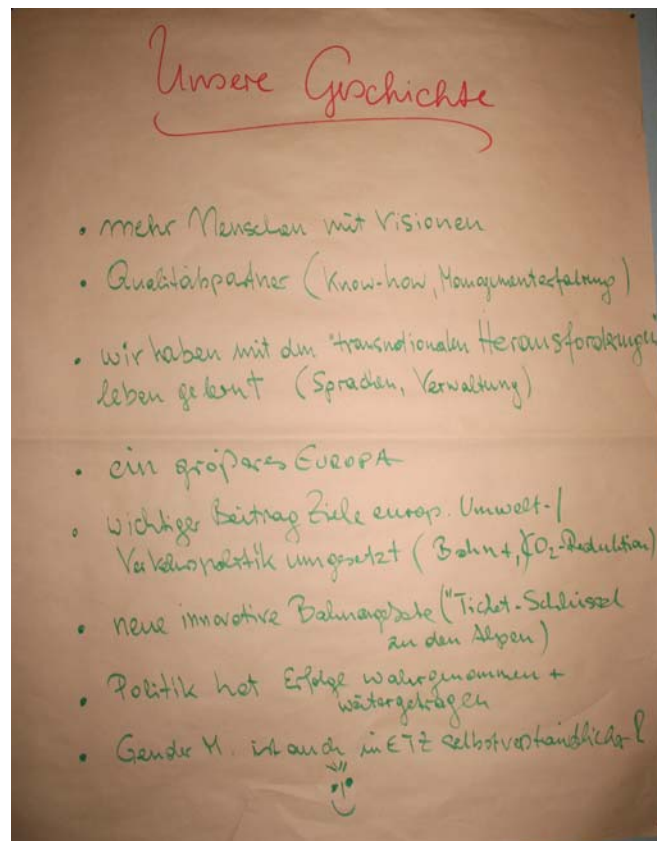 Unsere Geschichte
• mehr Menschen mit Visionen
• Qualitätspartner (Know-how, Managementerfahrung)
• wir haben mit den "transnationalen Herausforderungen
leben gelernt (Sprachen, Verwaltung)
• ein größeres EUROPA
• wichtiger Beitrag Ziele europ. Umwelt-/
Verkehrspolitik umgesetzt (Bahn+, CO₂-Reduktion)
• neue innovative Bahnangebote ("Ticket-Schlüssel
zu den Alpen)
• Politik hat Erfolge wahrgenommen +
weitergetragen
• Gender M. ist auch in ETZ selbstverständlicher